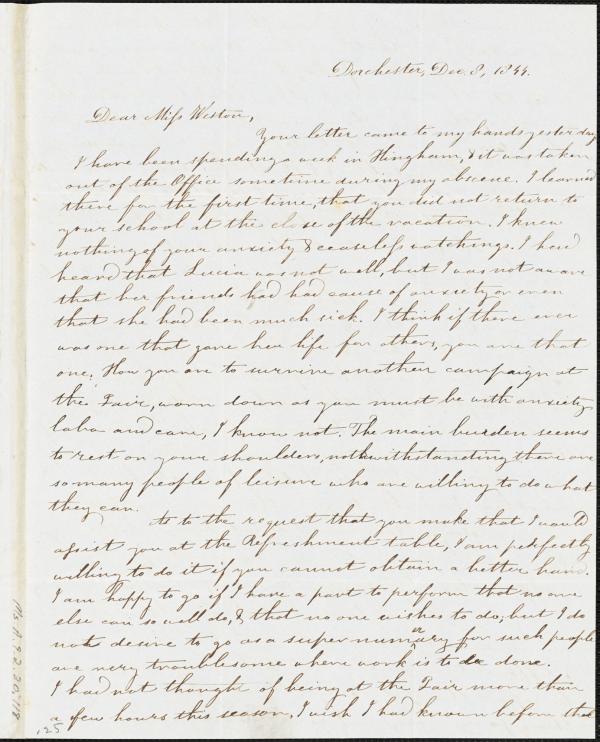 Dorchester, Dec. 8, 1844.
Dear Miss Weston,
Your letter came to my hands yesterday
I have been spending a week in Hingham, & it was taken
out of the Office sometime during my absence. I learned
there for the first time, that you did not return to
your school at the close of the vacation. I knew
nothing of your anxiety & ceaseless watchings. I had
heard that Lucia was not well, but I was not aware
that her friends had had cause of anxiety or even
that she had been much sick. I think if there ever
was one that gave her life for others, you are that
one. How you are to survive another campaign at
the Fair, worn down as you must be with anxiety
labor and care, I know not. The main burden seems
to rest on your shoulders, notwithstanding there are
so many people of leisure who are willing to do what
they can.
As to the request that you make that I would
assist you at the Refreshment table, I am perfectly
willing to do it if you cannot obtain a better hand.
I am happy to go if I have a part to perform that no one
else can so well do, & that no one wishes to do; but I do
not desire to go as a supernumerary for such people
are very troublesome where work is to be done.
I had not thought of being at the Fair more than
a few hours this season, I wish I had known before that
Ms.A.9.2.20,118
,25